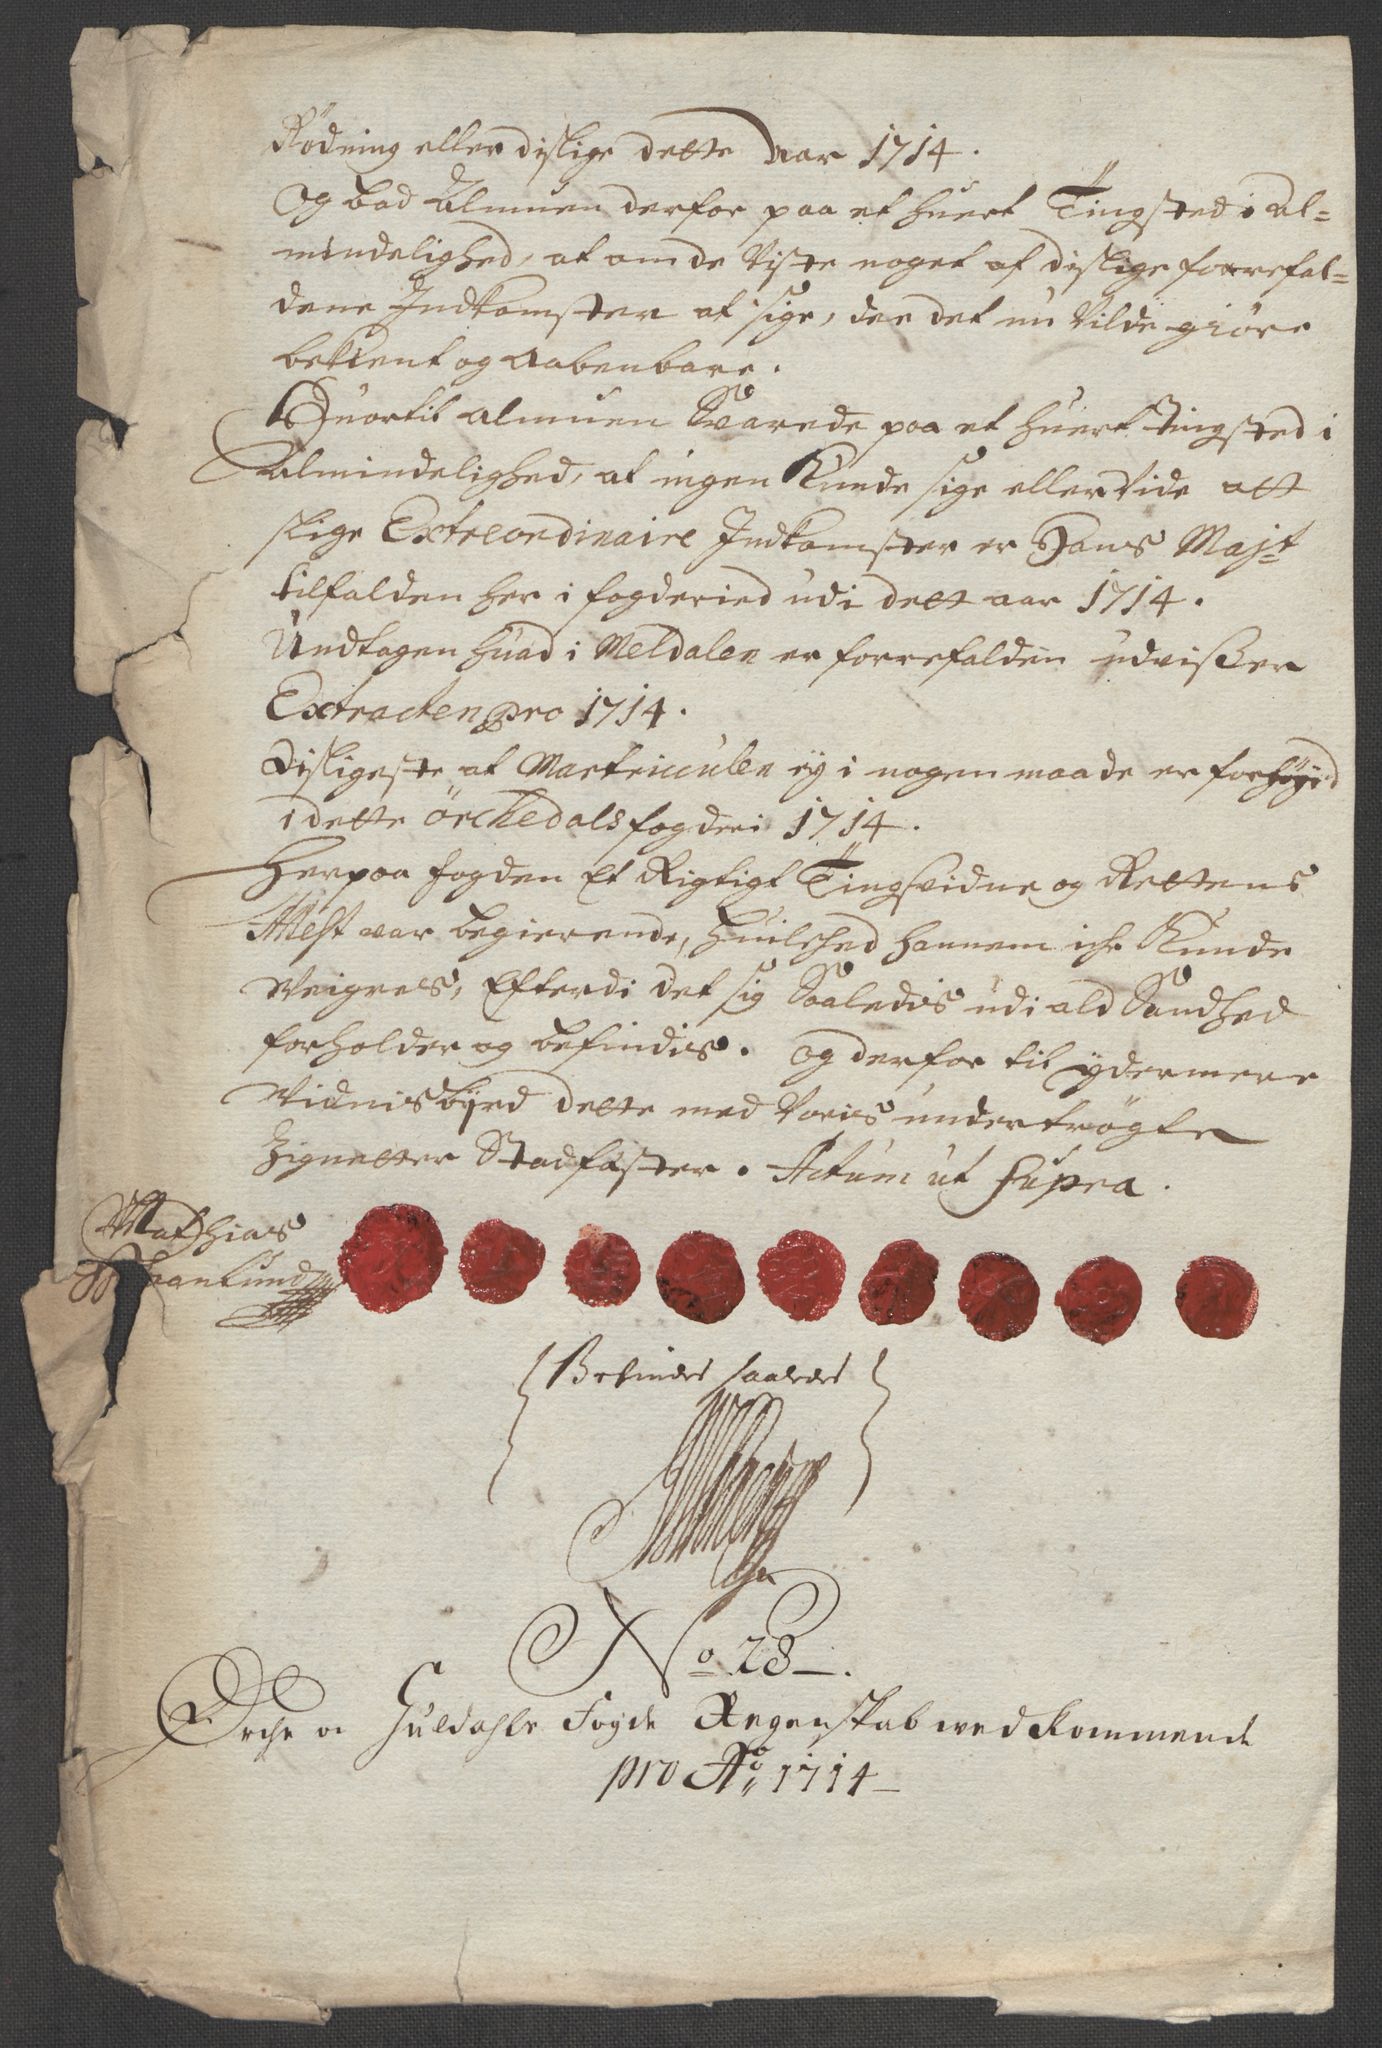 Rødning eller dislige dette aar 1714.
og bad Almuen derfor paa et huert Tingsted i Al-
mindelighed, at om de Viste noget af dislige forrefal-
dene Indkomster at sige, dee det nu Vilde giøre
bekient og aabenbare.
Huortil almuen Svarede paa et huert tingsted i
Almindelighed, at ingen Kunde sige eller Vide att
slige Extreordinaire Indkomster er Hans Majt
tilfalden her i fogderied udi dett aar 1714.
Undtagen huad i Meldalen er forrefalden udvißer
Extracten pro 1714.
Disligeste at Martricculen ey i nogen maade er forhøyed
i dette örchedals fogderi 1714.
Herpaa fogden Et Rigtigt Tingsvidne og Rettens
Attest var begierende, huilched hannem iche Kunde
Veigres, Efterdi det sig Saaledis udi ald Sandhed
forholder og befindis. og derfor til ydermere
Vidnisbyrd dette med Voris undertrögte
Zignetter Stadfæster. Actum ut supra.
Mathias
Befindes saaledes
No 28.
Orche og Guldahls Fogde Regenskab wedkommende
pro Ao 1714